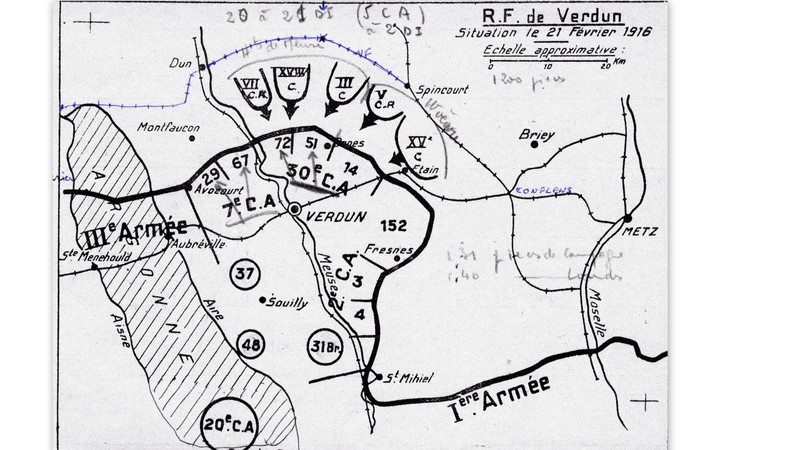 20 à 21 DI (5 CA)
à 2 DI
R.F. de Verdun
Situation le 21 Février 1916
Echelle approximative :
0 10 20 Km
1200 pièces
Hts de Meuse
Dun
VII
C.R.
XVIII
C.
III
C
V
C.R
XVe
C
Spincourt
Woëvre
Montfaucon
Briey
72
51
Ornes
67
29
14
30e C.A
Etain
Avocourt
7e C.A
CONFLANS
ARGONNE
IIIe Armée
VERDUN
152
METZ
Aubréville
Fresnes
Ste Menehould
2e C.A
Meuse
3
4
37
Souilly
Aire
Aisne
Moselle
48
31Br.
St Mihiel
Iere Armée
20e C.A